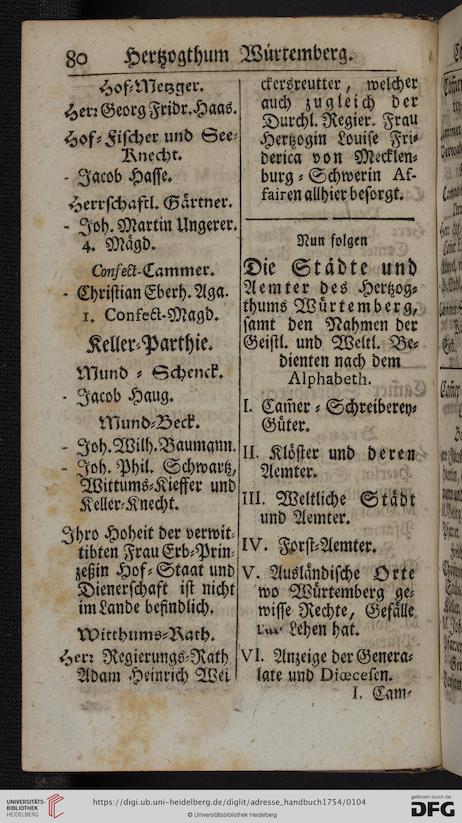 80 Hertzogthum Würtemberg.
Hof-Metzger.
Herr Georg Fridr. Haas.
Hof-Fischer und See-
Knecht.
- Jacob Hasse.
Herrschaftl. Gärtner.
- Joh. Martin Ungerer.
4. Mägd.
Confect-Cammer.
- Christian Eberh. Aga.
1. Confect-Magd.
Keller-Parthie.
Mund-Schenck.
- Jacob Haug.
Mund-Beck.
- Joh. Wilh. Baumann.
- Joh. Phil. Schwartz,
Wittums-Kieffer und
Keller-Knecht.
Ihro Hoheit der verwit-
tibten Frau Erb-Prin-
zeßin Hof-Staat und
Dienerschaft ist nicht
im Lande befindlich.
Witthums-Rath.
Herr Regierungs-Rath
Adam Heinrich Wei
ckersreutter, welcher
auch zugleich der
Durchl. Regier. Frau
Hertzogin Louise Fri-
derica von Mecklen-
burg-Schwerin Af-
fairen allhier besorgt.
Nun folgen
Die Städte und
Aemter des Hertzog-
thums Würtemberg,
samt den Nahmen der
Geistl. und Weltl. Be-
dienten nach dem
Alphabeth.
I. Cam̃er-Schreiberey-
Güter.
II. Klöster und deren
Aemter.
III. Weltliche Städt
und Aemter.
IV. Forst-Aemter.
V. Ausländische Orte
wo Würtemberg ge-
wisse Rechte, Gefälle
Lehen hat.
VI. Anzeige der Genera-
late und Diœcesen.
I. Cam-
UNIVERSITÄTS-
BIBLIOTHEK
HEIDELBERG
https://digi.ub.uni-heidelberg.de/diglit/adresse_handbuch1754/0104
© Universitätsbibliothek Heidelberg
gefördert durch die
DFG